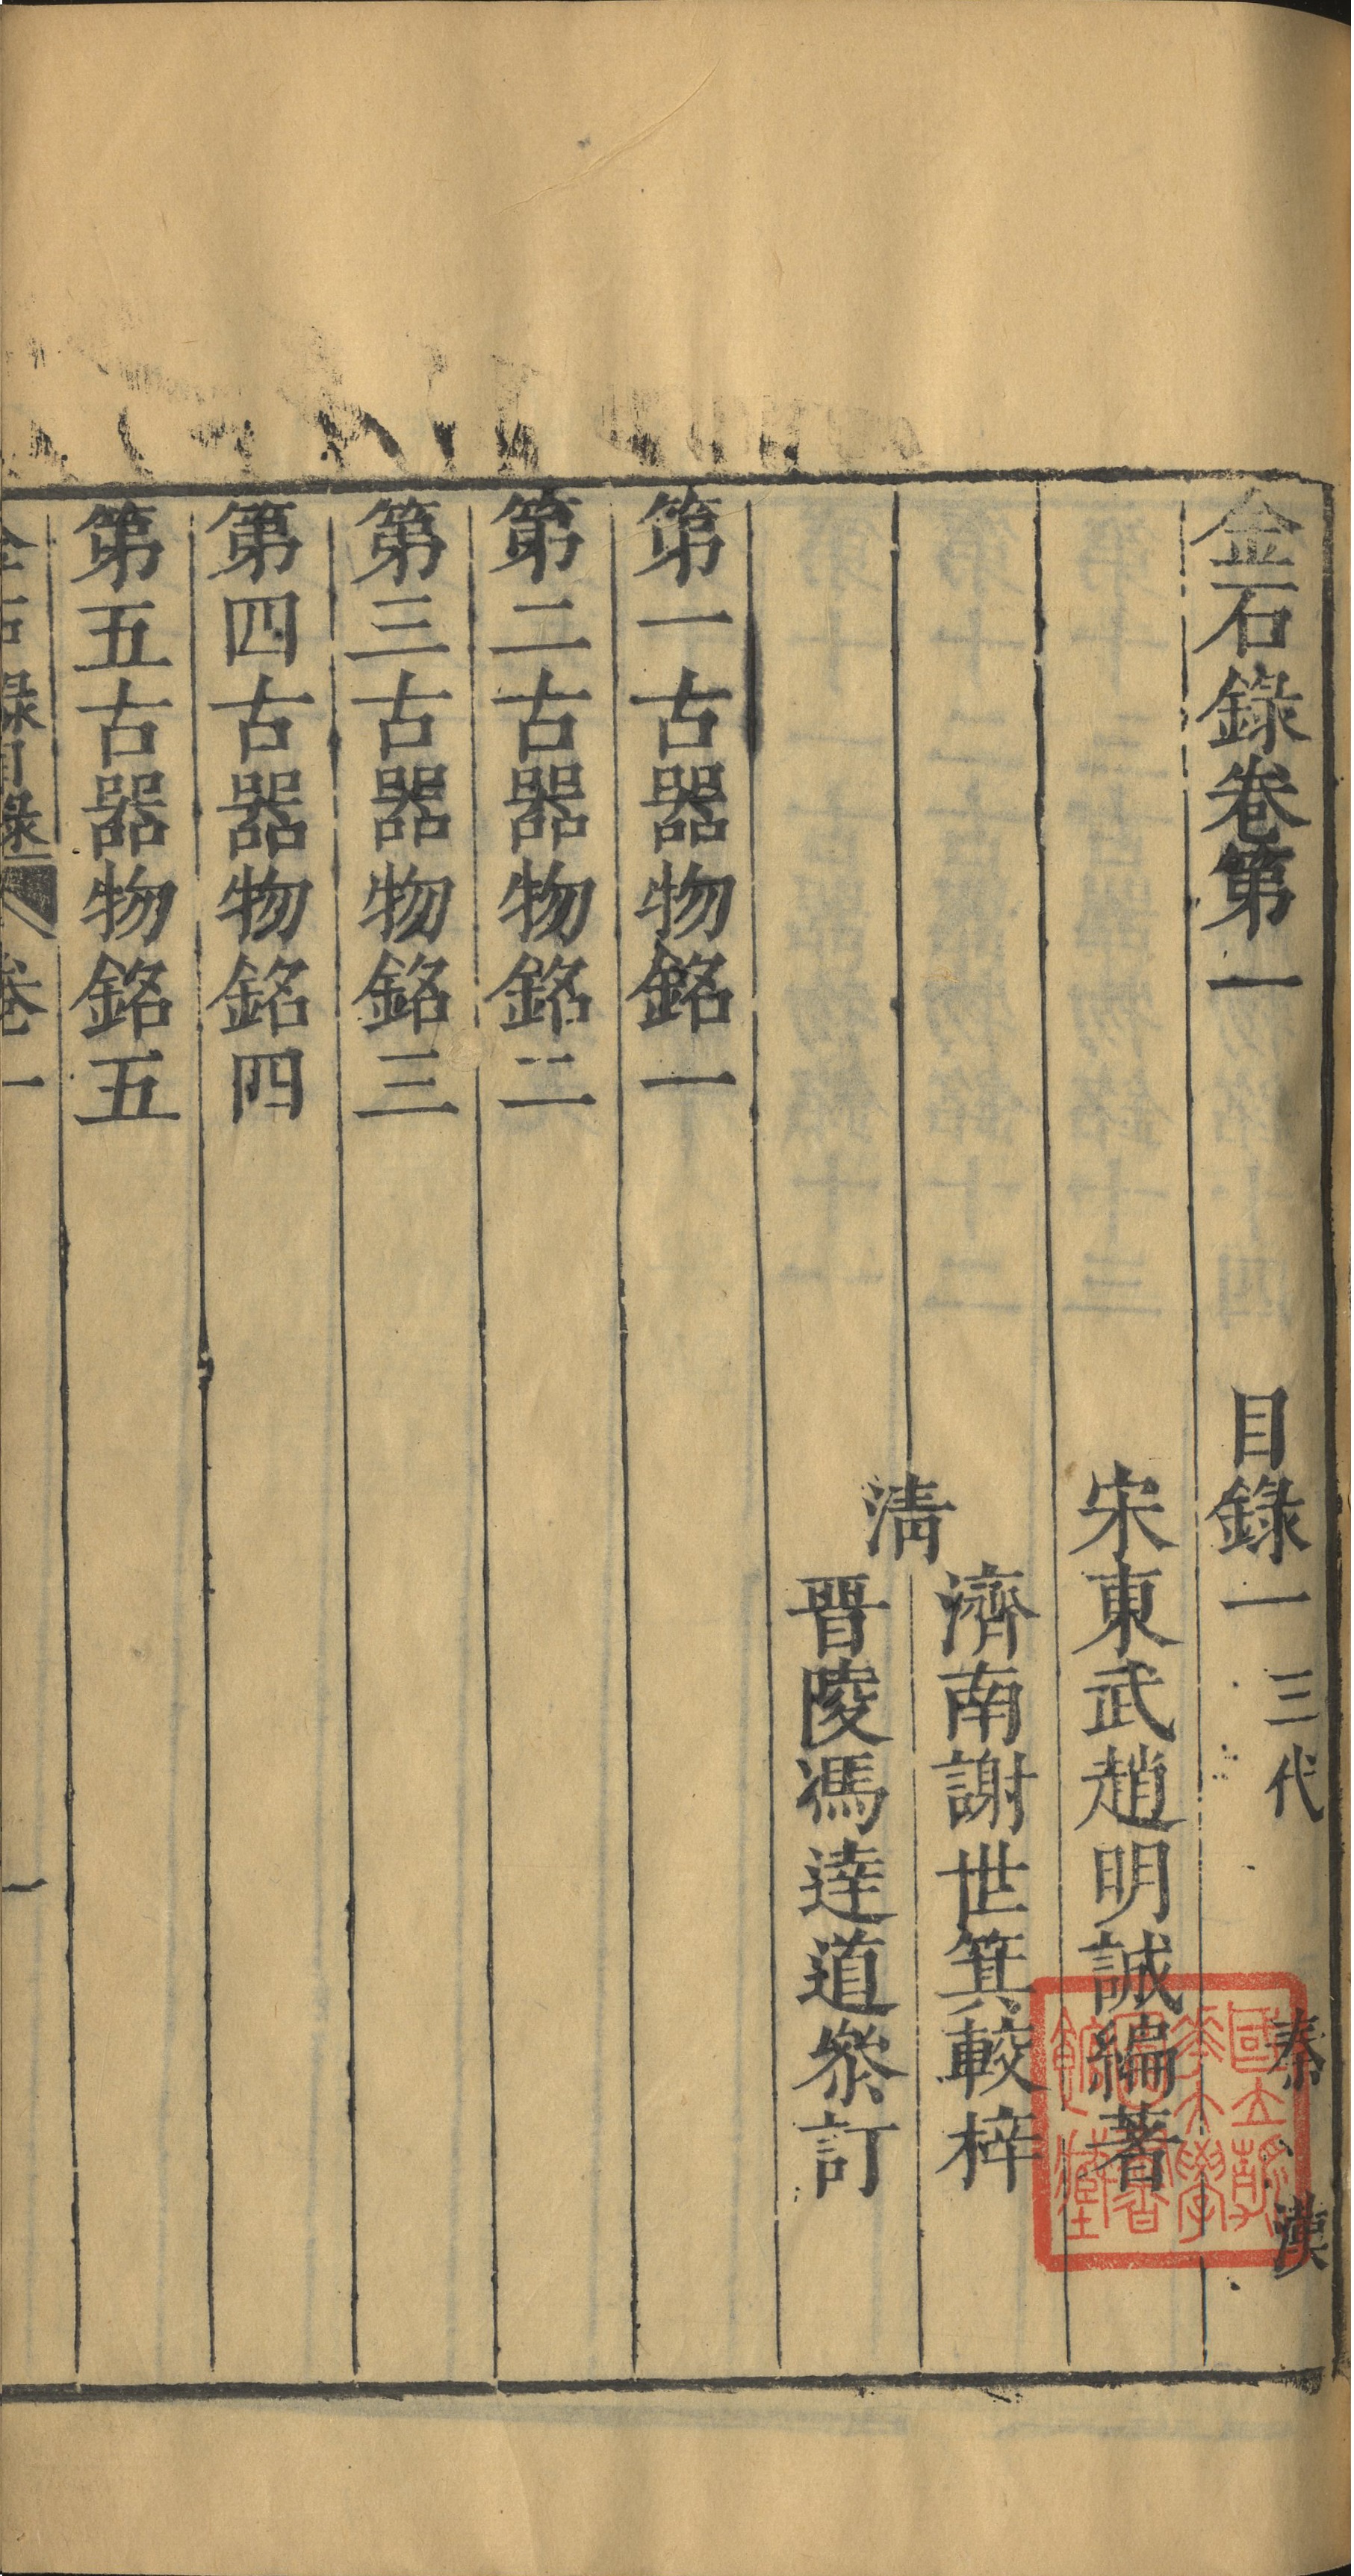 金石錄卷第一　目錄一　三代　秦　漢
宋東武趙明誠編著
清
濟南謝世箕較梓
晉陵馮達道叅訂
第一古器物銘一
第二古器物銘二
第三古器物銘三
第四古器物銘四
第五古器物銘五
金石録目錄　卷一　一
國立清華大學圖書館藏